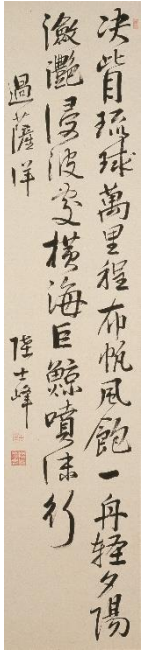 決眥琉球萬里程布帆風飽一舟輕夕陽
瀲灩浸波處橫海巨鯨噴沫行
過薩洋
陸士峰